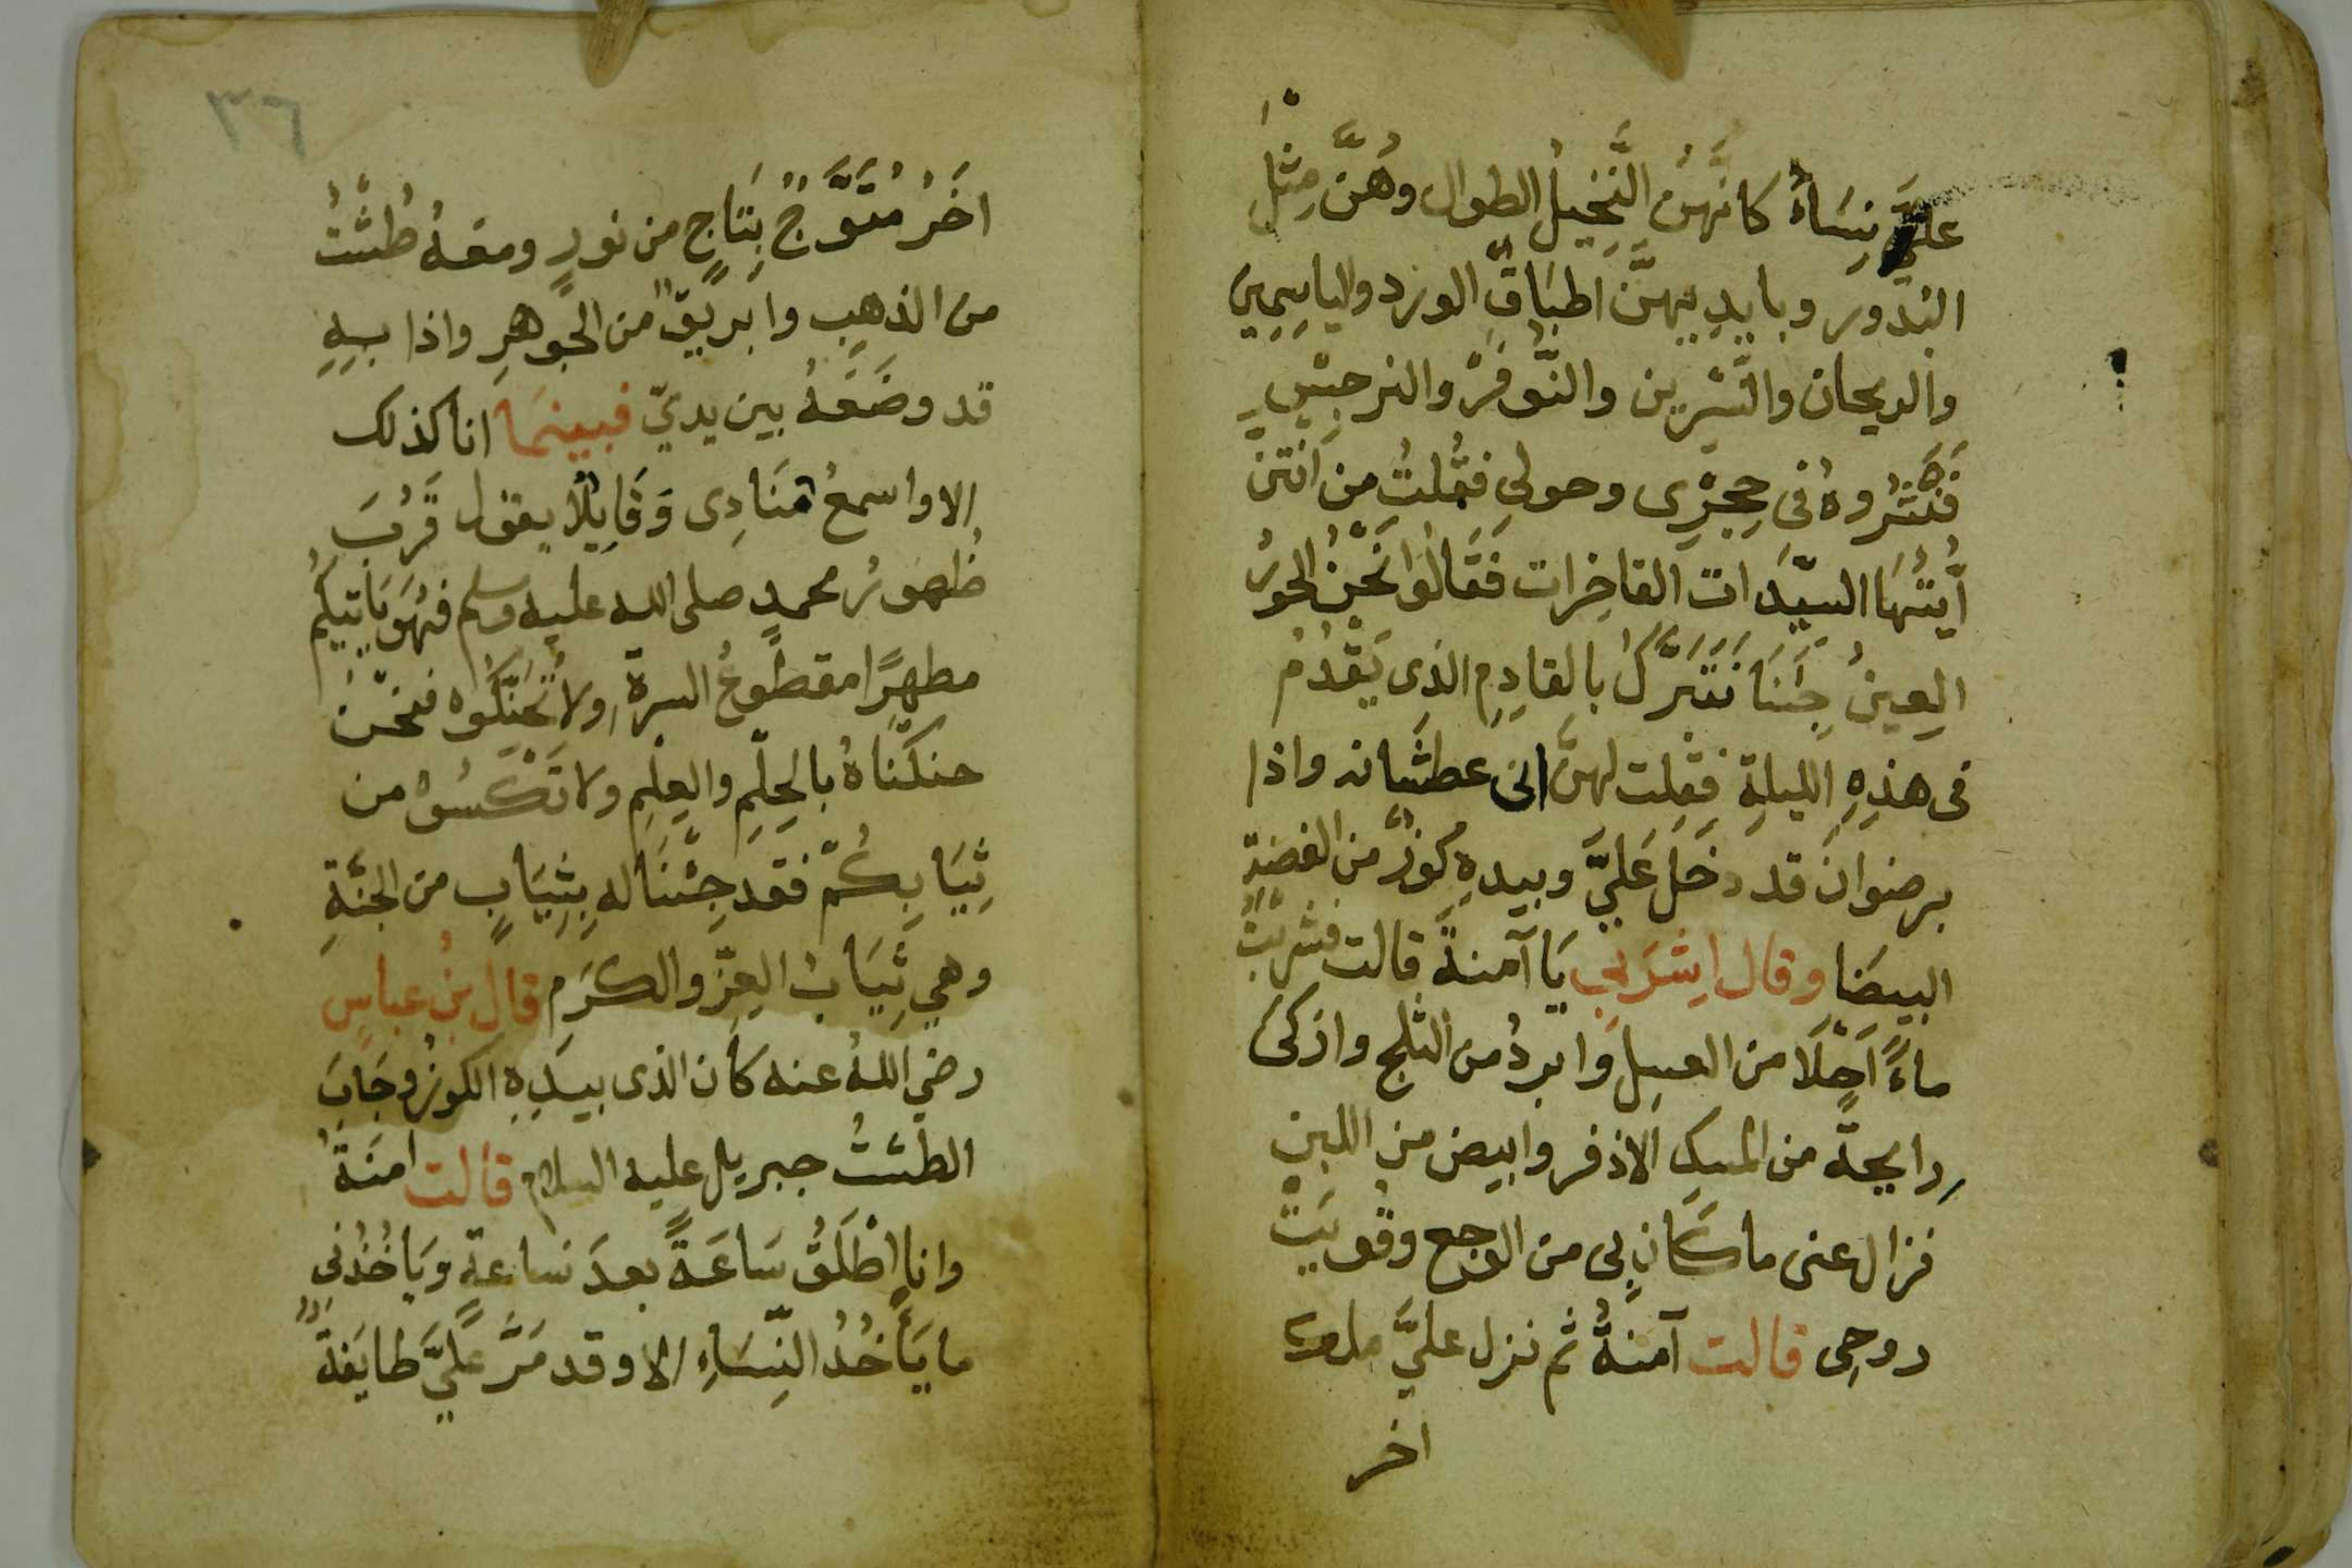 عليَّ نِسَاءٌ كانَّهُنَّ النَّخِيلُ الطوال وهُنَّ مِثْلَ
البُدُور وبايدِيهنَّ اطبَاقٌ الورد والياسِمِين
والريحان والنَّسْرِين والنَّوفَرْ والنرجِسِ
فَنَثَرُوهُ فى حِجْرِى وحولى فَقُلتُ من اَنْتُنَّ
أيَّتُهَا السيّدَات الفاخِرات فَقَالُوا نَحْنُ الحُورُ
العِينُ جِئنَا نَتَبَرَّكُ بالقادِمِ الذى يَقْدُمُ
فى هذِهِ الليلةِ فقلت لهنَّ انى عطشَانه واذا
برضوانَ قد دخَلَ عَلَيَّ وبيدهِ كُوزٌ من الفضةِ
البيضَا وقال اِشْرَبِى يَا آمنةَ قالت فشربْتُ
ماءً اَحْلَا من العسِلِ وابردُ من الثلج واذكى
رايحةً من المسِكِ الاذفر وابيض من اللبن
فزال عنى ما كَان بِى من الوجع وقويَتْ
روحِى قالت آمنةُ ثم نزل عليَّ ملك
اخر
٣٦
اخَرُ مُتَوَّجٌ بِتَاجٍ من نورٍ ومعَهُ طُشْتُ
من الذهبِ وابريقٌ من الجَوهَرِ واذا بِهِ
قد وضَعَهُ بين يديّ فبينمَا انا كذلك
الا واسمعُ مُنَادِى وَقَايِلًا يقول قَرُبَ
ظُهورُ محمدٍ صلى الله عليه وسلم فهُوَ يَاتيكُمْ
مطهرًا مقطُوعُ السرةِ ولا تُحَنّكُوه فنحْنُ
حنكْنَاهُ بالحِلْمِ والعِلْمِ ولا تَكْسُوهُ من
ثِيَابِكُمْ فقد جِئْنَا له بِثِيَابٍ من الجَنَّةِ
وهي ثِيَابُ العِزِّ والكرَم قال بنُ عباسٍ
رضي اللهُ عنه كَان الذى بيَدِهِ الكوزُ وجَابَ
الطشتُ جبريل عليه السلام قالت امنَةُ
وانا اطْلَقُ سَاعَةً بعدَ سَاعةٍ ويَاخُذُنى
ما يَأخُذُ النِّسَاءِ الا وقد مَرَّ عَلَيَّ طايَفةٌ